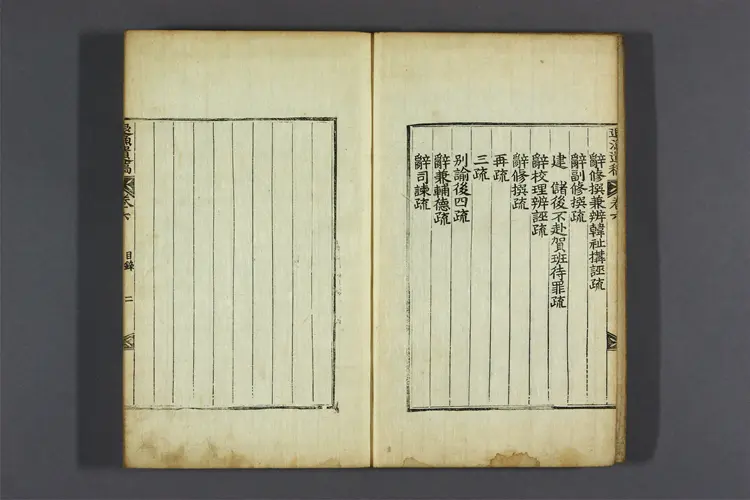 退漁遺稿 卷六
辭修撰兼辨韓祉搆誣疏
辭副修撰疏
建 儲後不赴賀班待罪疏
辭校理辨誣疏
辭修撰疏
再疏
三疏
別諭後四疏
辭兼輔德疏
辭司諫疏
退漁遺稿 卷六 目錄 二